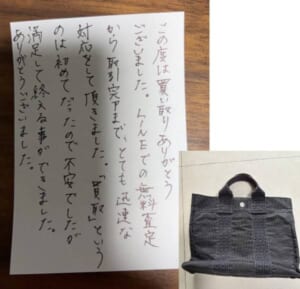 この度は買い取りありがとう
ございました。LINEでの無料査定
から取引完了まで、とても迅速な
対応をして頂きました。「買取」という
のは初めてだったので不安でしたが
満足して終える事ができました。
ありがとうございました。